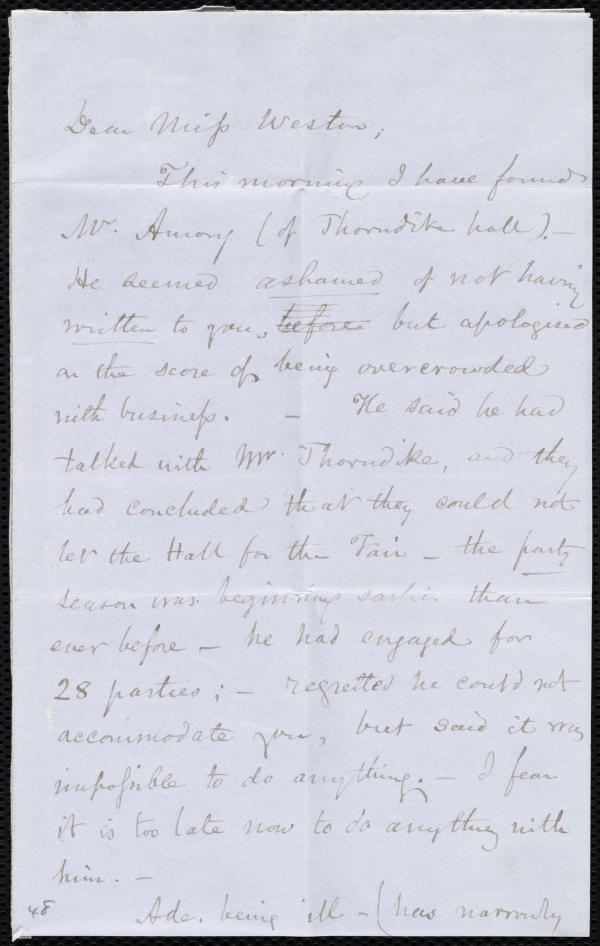 Dear Miss Weston;
This morning I have found
Mr. Amory (of Thorndike hall). —
He seemed ashamed of not having
written to you, before but apologised
on the score of being overcrowded
with business. — He said he had
talked with Mr. Thorndike, and they
had concluded that they could not
let the Hall for the Fair — the party
season was beginning earlier than
ever before — he had engaged for
28 parties; — regretted he could not
accommodate you, but said it was
impossible to do anything. — I fear
it is too late now to do anything with
him. —
Ade. being ill — (has narrowly
48